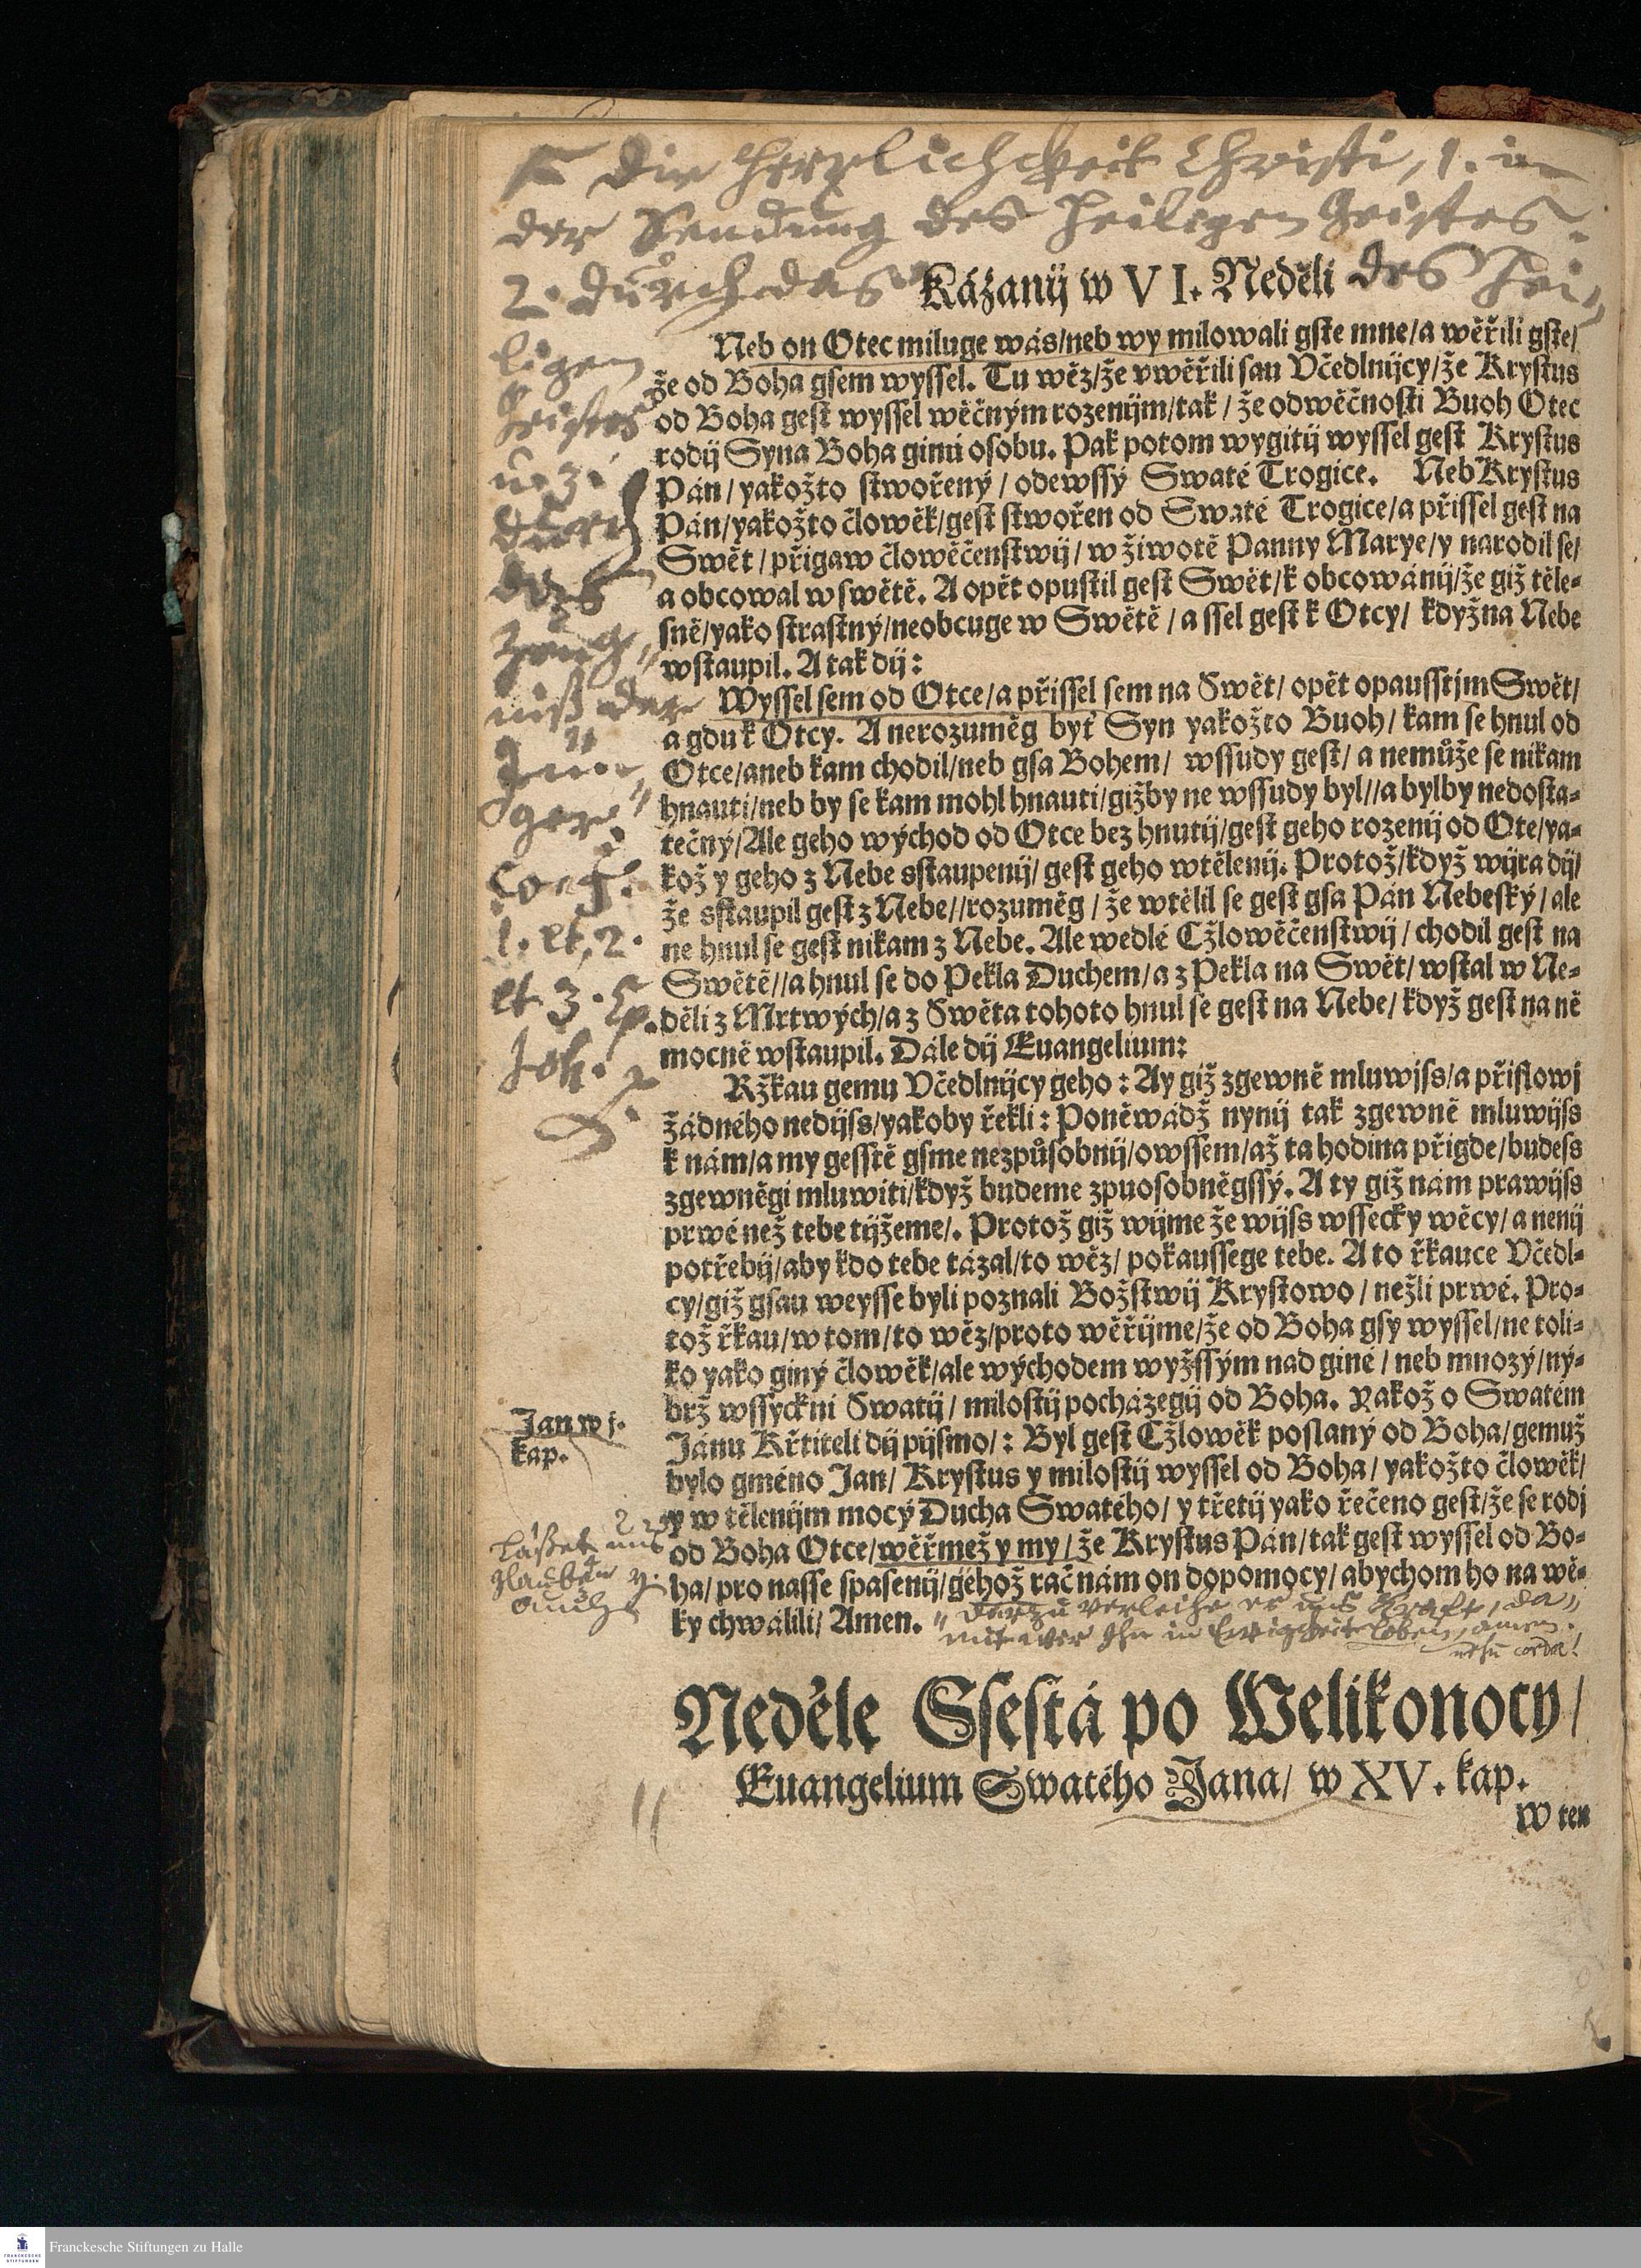 Die Herrlichckeit Christi, 1. in
der Sendung des Heiligen Geistes.
2. durch das
des Hei„
ligen
Geistes
durch
das
Zeug„
niß der
Jün„
ger
1. et 2.
et 3. Ep.
Joh.
Kázanij w VI. Neděli
Neb on Otec miluge wás/neb wy milowali gste mne/a wěřili gste/
že od Boha gsem wyssel. Tu wěz/že vwěřili sau Včedlnijcy/že Krystus
od Boha gest wyssel wěčným rozenijm/tak/že odwěčnosti Buoh Otec
rodij Syna Boha ginú osobu. Pak potom wygitij wyssel gest Krystus
Pán/yakožto stwořený/odewssý Swaté Trogice. Neb Krystus
Pán/yakožto člowěk/gest stwořen od Swaté Trogice/a přissel gest na
Swět/přigaw člowěčenstwij/w žiwotě Panny Marye/y narodil se/
a obcowal w swětě. A opět opustil gest Swět/k obcowánij/že giž těle-
sně/yako strastný/neobcuge w Swětě/a ssel gest k Otcy/ když na Nebe
wstaupil. A tak dij:
Wyssel sem od Otce/a přissel sem na Swět/ opět opausstjm Swět/
a gdu k Otcy. A nerozuměg byť Syn yakožto Buoh/ kam se hnul od
Otce/aneb kam chodil/neb gsa Bohem/ wssudy gest/ a nemůže se nikam
hnauti/neb by se kam mohl hnauti/gižby ne wssudy byl//a bylby nedosta-
tečný/Ale geho wýchod od Otce bez hnutij/gest geho rozenij od Ote/ya-
kož y geho z Nebe sstaupenij/ gest geho wtělenij. Protož/když wijra dij/
že sstaupil gest z Nebe//rozuměg/že wtělil se gest gsa Pán Nebeský/ale
ne hnul se gest nikam z Nebe. Ale wedlé Cžlowěčenstwij/chodil gest na
Swětě//a hnul se do Pekla Duchem/a z Pekla na Swět/wstal w Ne-
děli z Mrtwých/a z Swěta tohoto hnul se gest na Nebe/když gest na ně
mocně wstaupil. Dále dij Euangelium:
Ržkau gemu Včedlnijcy geho: Ay giž zgewně mluwjss/a přislowj
žádného nedijss/yakoby řekli: Poněwádž nynij tak zgewně mluwijss
k nám/a my gesstě gsme nezpůsobnij/owssem/až ta hodina přigde/budess
zgewněgi mluwiti/když budeme zpuosobněgssý. A ty giž nám prawijss
prwé než tebe tijžeme/. Protož giž wijme že wijss wssecky wěcy/a nenij
potřebij/aby kdo tebe tázal/to wěz/pokaussege tebe. A to řkauce Včedl-
cy/giž gsau weysse byli poznali Božstwij Krystowo/nežli prwé. Pro-
tož řkau/w tom/to wěz/proto wěřijme/že od Boha gsy wyssel/ne toli-
ko yako giný člowěk/ale wýchodem wyžssým nad giné/neb mnozý/ný-
brž wssyckni Swatij/milostij pocházegij od Boha. Yakož o Swatém
Jánu Křtiteli dij pijsmo/: Byl gest Cžlowěk poslaný od Boha/gemuž
bylo gméno Jan/ Krystus y milostij wyssel od Boha/yakožto člowěk/
y w tělenijm mocý Ducha Swatého/ y třetij yako řečeno gest/že se rodj
od Boha Otce/wěřmež y my/že Krystus Pán/tak gest wyssel od Bo-
ha/pro nasse spasenij/gehož rač nám on dopomocy/abychom ho na wě-
ky chwálili/ Amen.
Jan w j.
kap.
Laßet uns
glauben
darzu verleihe er uns Kraft, da„
mit wir Ihn in Ewigkeit loben, amen.
Neděle Ssestá po Welikonocy/
Euangelium Swatého Jana/ w XV. kap.
W ten
Franckesche Stiftungen zu Halle